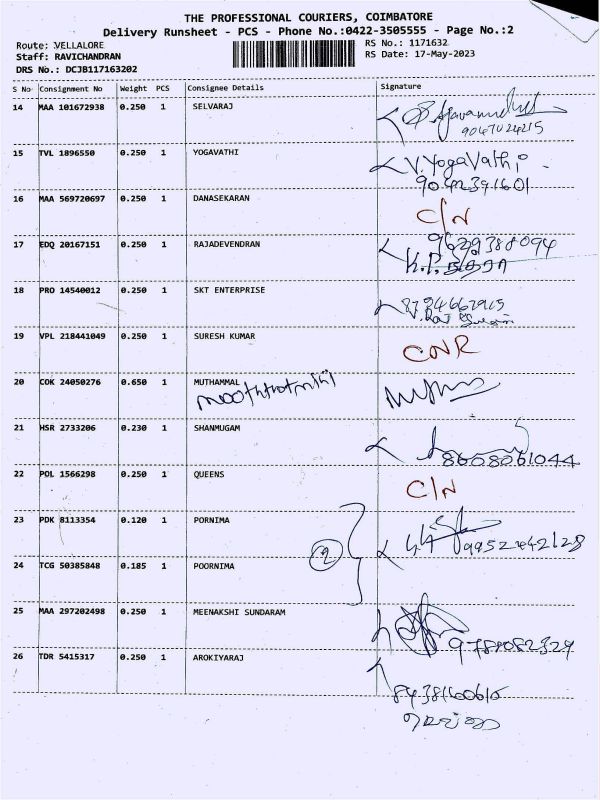 THE PROFESSIONAL COURIERS, COIMBATORE
Delivery Runsheet - PCS - Phone No.:0422-3505555 - Page No.:2
Route: VELLALORE
RS No.: 1171632
Staff: RAVICHANDRAN
RS Date: 17-May-2023
DRS No.: DCJB117163202
S No Consignment No Weight PCS Consignee Details Signature
14 MAA 101672938 0.250 1 SELVARAJ
9047024215
15 TVL 1896550 0.250 1 YOGAVATHI V. Yogavathi
9042391601
16 MAA 569720697 0.250 1 DANASEKARAN
C/N
17 EDQ 20167151 0.250 1 RAJADEVENDRAN 9629388094
K.P.
18 PRO 14540012 0.250 1 SKT ENTERPRISE
19 VPL 218441049 0.250 1 SURESH KUMAR
CNR
20 COK 24050276 0.650 1 MUTHAMMAL
21 HSR 2733206 0.230 1 SHANMUGAM
8608061044
22 POL 1566298 0.250 1 QUEENS
C/N
23 PDK 8113354 0.120 1 PORNIMA
9952442128
2
24 TCG 50385848 0.185 1 POORNIMA
25 MAA 297202498 0.250 1 MEENAKSHI SUNDARAM
9789082329
26 TDR 5415317 0.250 1 AROKIYARAJ
8438160610